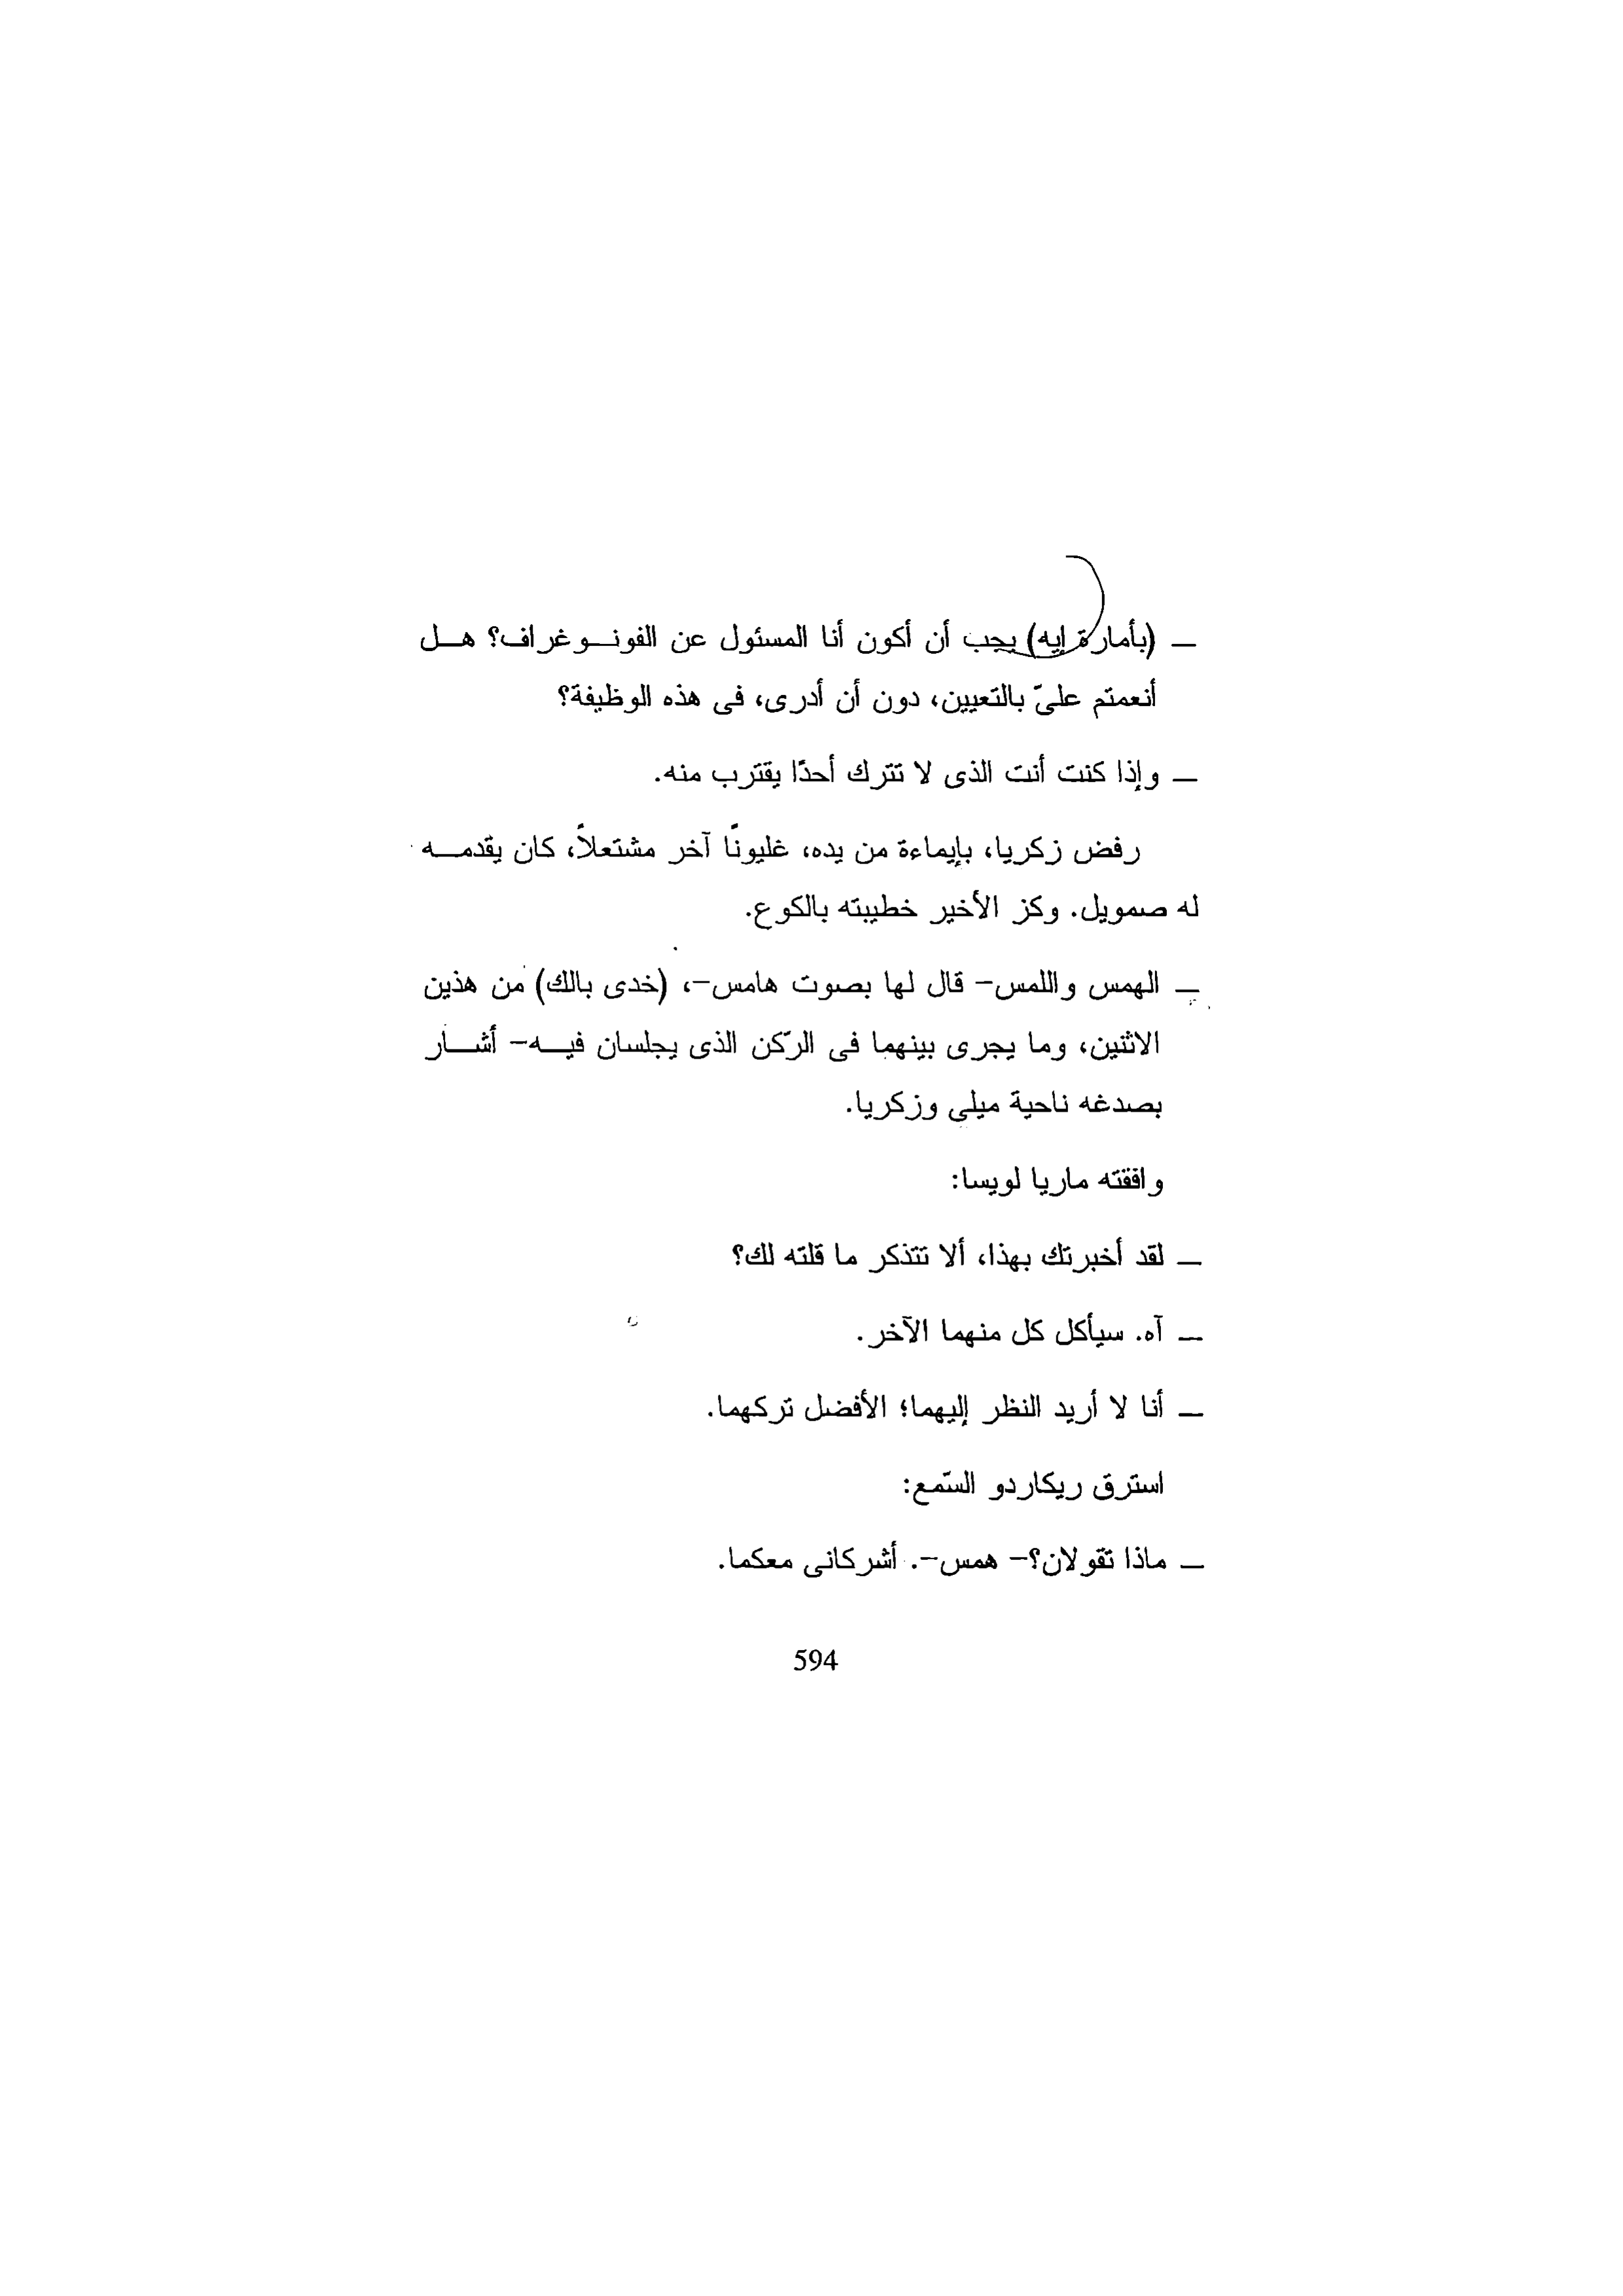 ــ (بأمارة إيه) يجب أن أكون أنا المسئول عن الفونـوغراف؟ هـل
أنعمتم علىّ بالتعيين، دون أن أدرى، فى هذه الوظيفة؟
ــ وإذا كنت أنت الذى لا تترك أحدًا يقترب منه.
رفض زكريا، بإيماءة من يده، غليونًا آخر مشتعلاً، كان يقدمـه
له صمويل. وكز الأخير خطيبته بالكوع.
ــ الهمس واللمس- قال لها بصوت هامس-، (خدى بالك) من هذين
الاثنين، وما يجرى بينهما فى الرّكن الذى يجلسان فيـه- أشـار
بصدغه ناحية ميلى وزكريا.
وافقته ماريا لويسا:
ــ لقد أخبرتك بهذا، ألا تتذكر ما قلته لك؟
ــ آه. سيأكل كل منهما الآخر.
ــ أنا لا أريد النظر إليهما؛ الأفضل تركهما.
استرق ريكاردو السّمع:
ــ ماذا تقولان؟- همس-. أشركانى معكما.
594